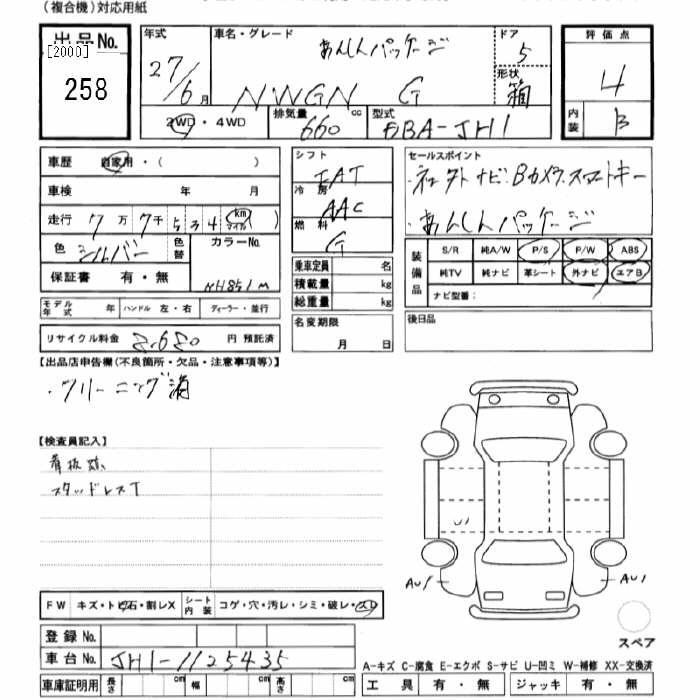 (複合機)対応用紙
出品No.
[2000]
258
年式
27/6月
車名・グレード
あんしんパッケージ
NWGN G
ドア
5
形状
箱
2WD・4WD
排気量
660 cc
型式
DBA-JH1
評価点
4
内装
B
車歴 自家用・( )
車検 年 月
走行 7万7千534 (km マイル)
色 シルバー
色替
カラーNo.
NH851M
保証書 有・無
モデル年式 年
ハンドル 左・右
ディーラー・並行
リサイクル料金 8,680 円 預託済
シフト
FAT
冷房
AAC
燃料
G
乗車定員 名
積載量 kg
総重量 kg
名変期限
月 日
セールスポイント
・社外ナビ、Bカメラ、スマートキー
・あんしんパッケージ
装備品
S/R 純A/W P/S P/W ABS
純TV 純ナビ 革シート 外ナビ エアB
ナビ型番:
後日品
【出品店申告欄(不良箇所・欠品・注意事項等)】
・クリーニング済
【検査員記入】
看板跡、
スタッドレスT
U1
AU1
AU1
スペア
FW キズ・トビ石・割レX
シート内装 コゲ・穴・汚レ・シミ・破レ・スレ
登録No.
車台No. JH1-1125435
車庫証明用 長さ cm 幅 cm 高さ cm
A-キズ C-腐食 E-エクボ S-サビ U-凹ミ W-補修 XX-交換済
工具 有・無 ジャッキ 有・無